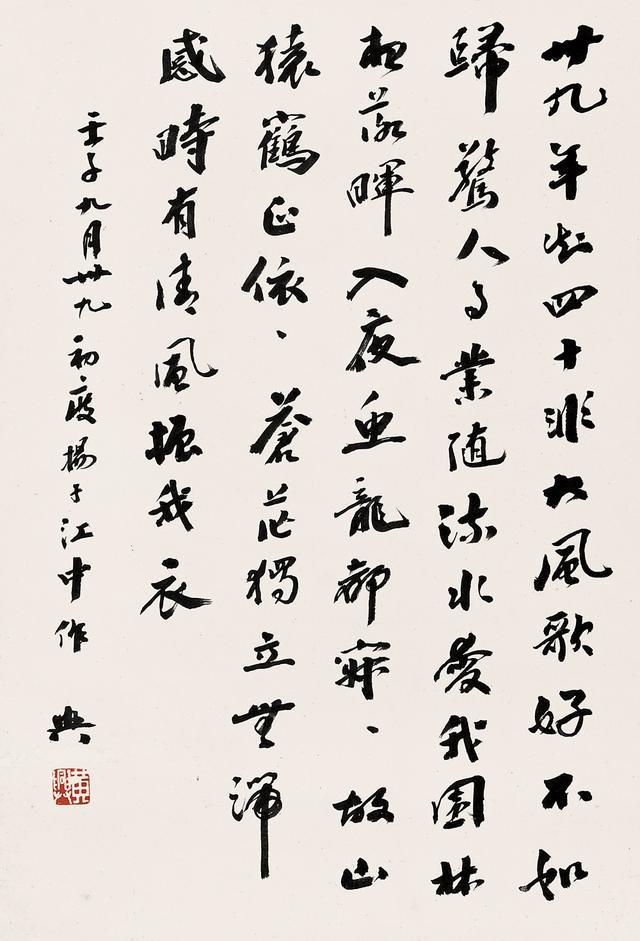 卅九年知四十非大風歌好不如
歸驚人事業隨流水愛我園林
想落暉入夜魚龍都寂、故山
猿鶴正依、蒼茫獨立無端
感時有清風振我衣
壬子九月卅九初度揚子江中作 興
黃興